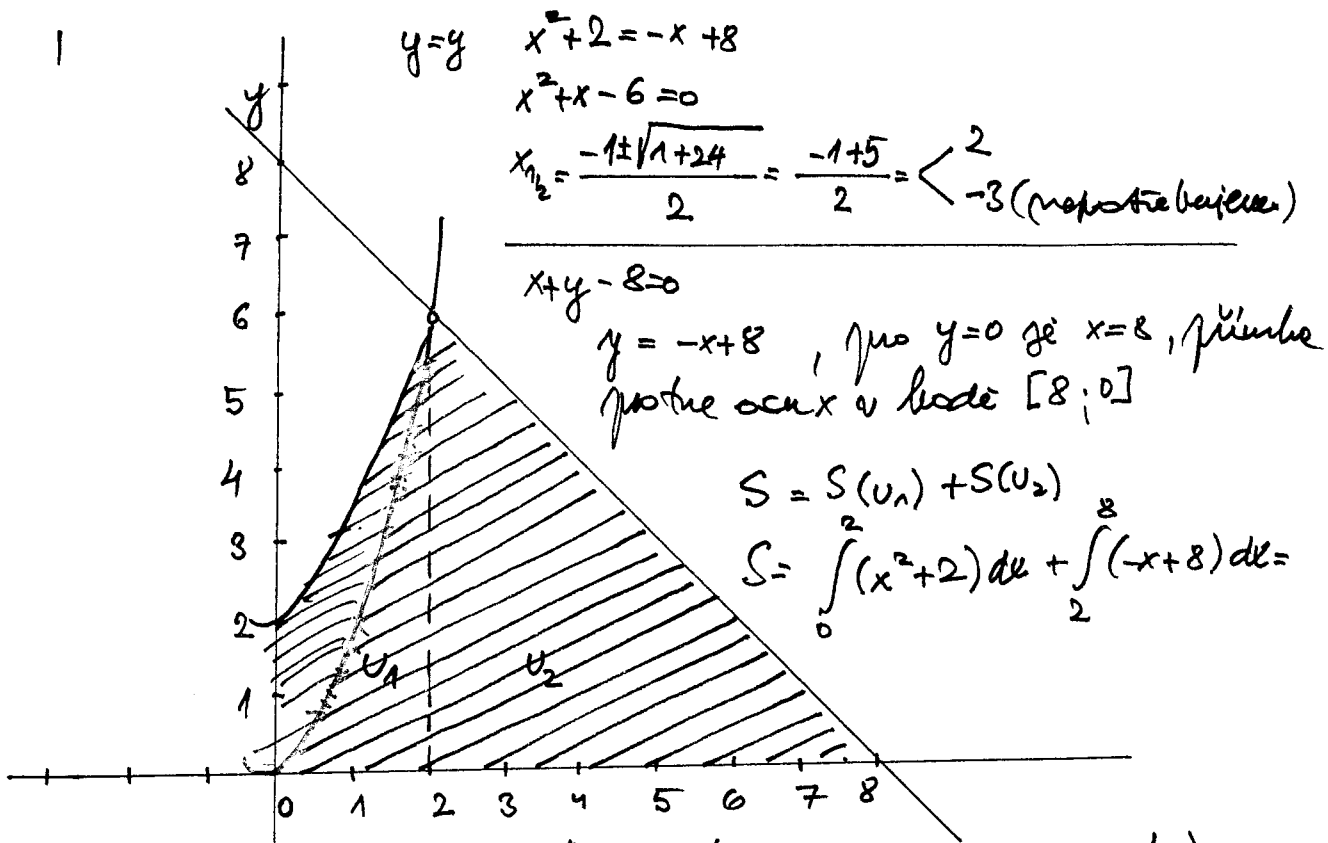 1
y=y x²+2=-x+8
x²+x-6=0
x₁,₂ = (-1±√(1+24))/2 = (-1+5)/2 = < 2
-3 (nepotřebujeme)
x+y-8=0
y = -x+8 , pro y=0 je x=8, přímka
protne osu x v bodě [8;0]
S = S(U₁) + S(U₂)
S = ∫₀² (x²+2) dx + ∫₂⁸ (-x+8) dx =
y
8
7
6
5
4
3
2
1
U₁ U₂
0 1 2 3 4 5 6 7 8